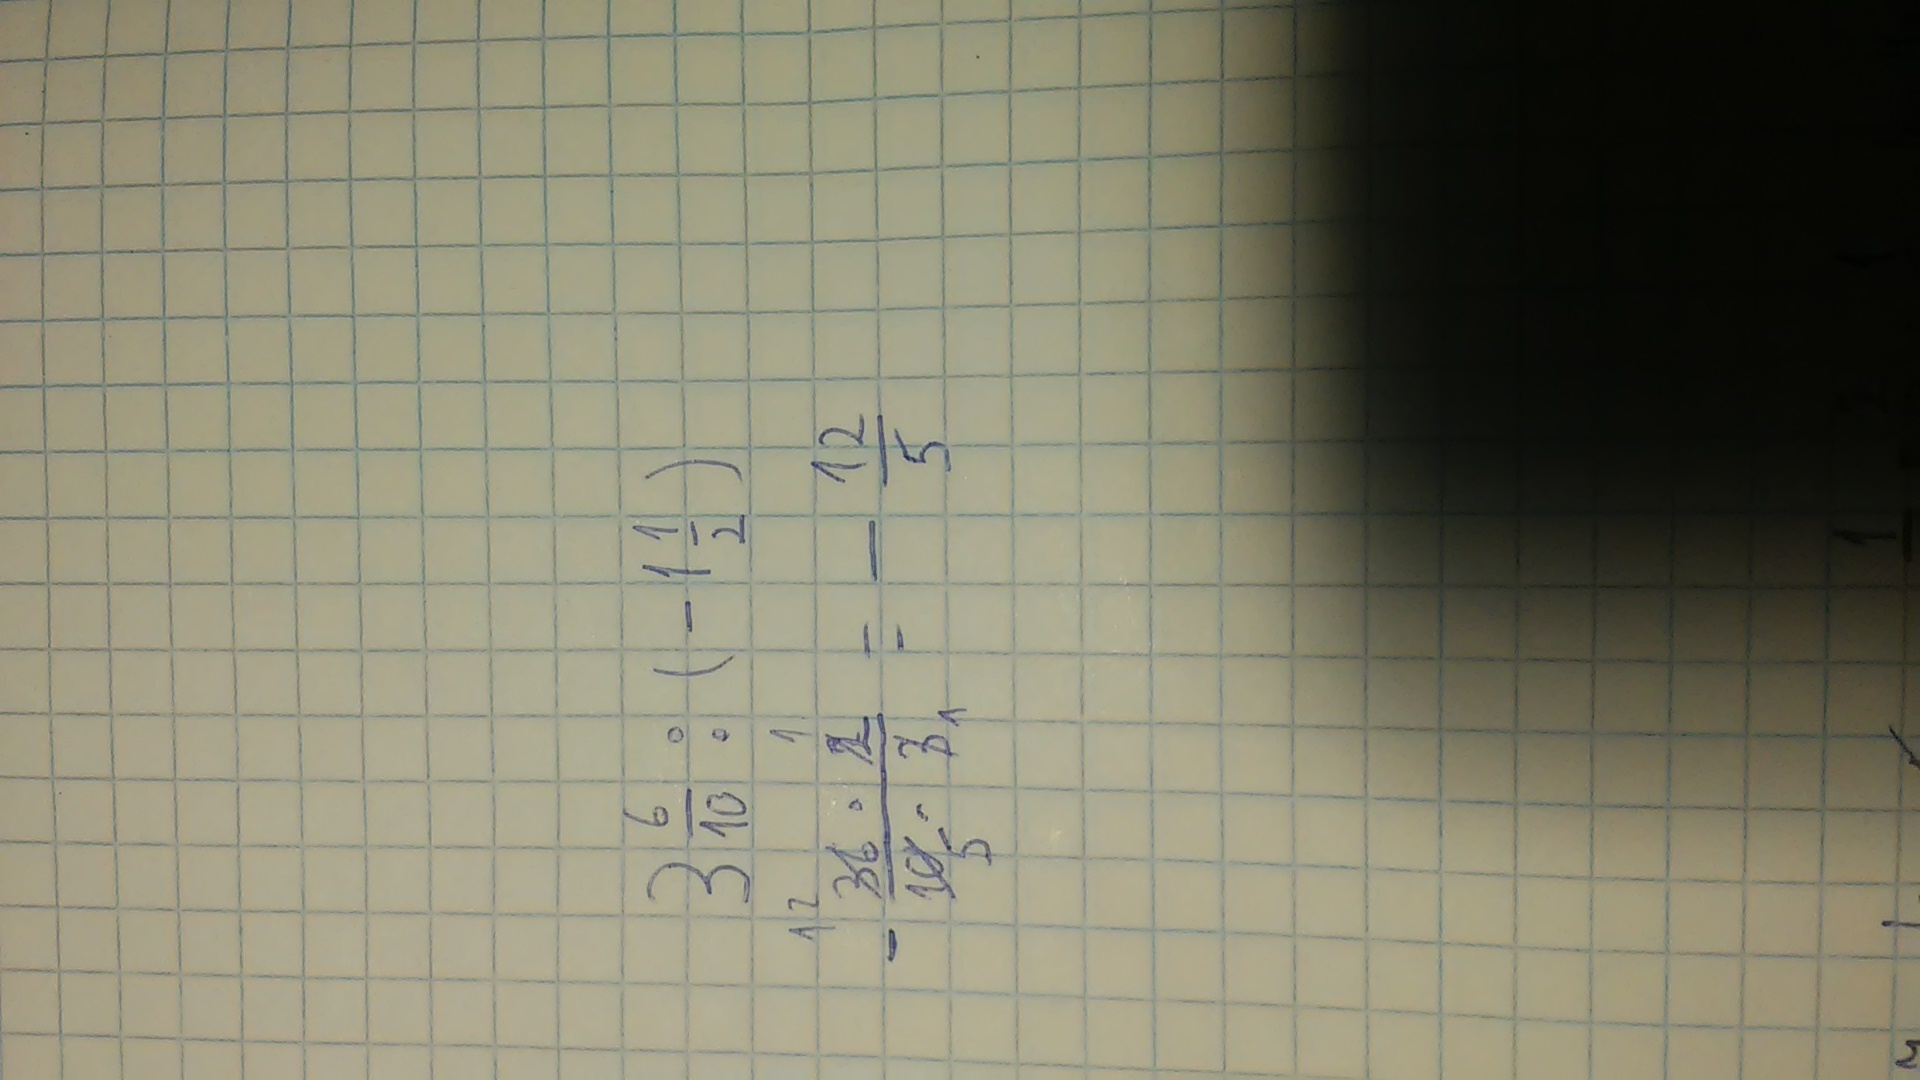 3 6/10 : (-1 1/2)
- 12 36 · 2 1 / 10 5 · 3 1 = - 12/5